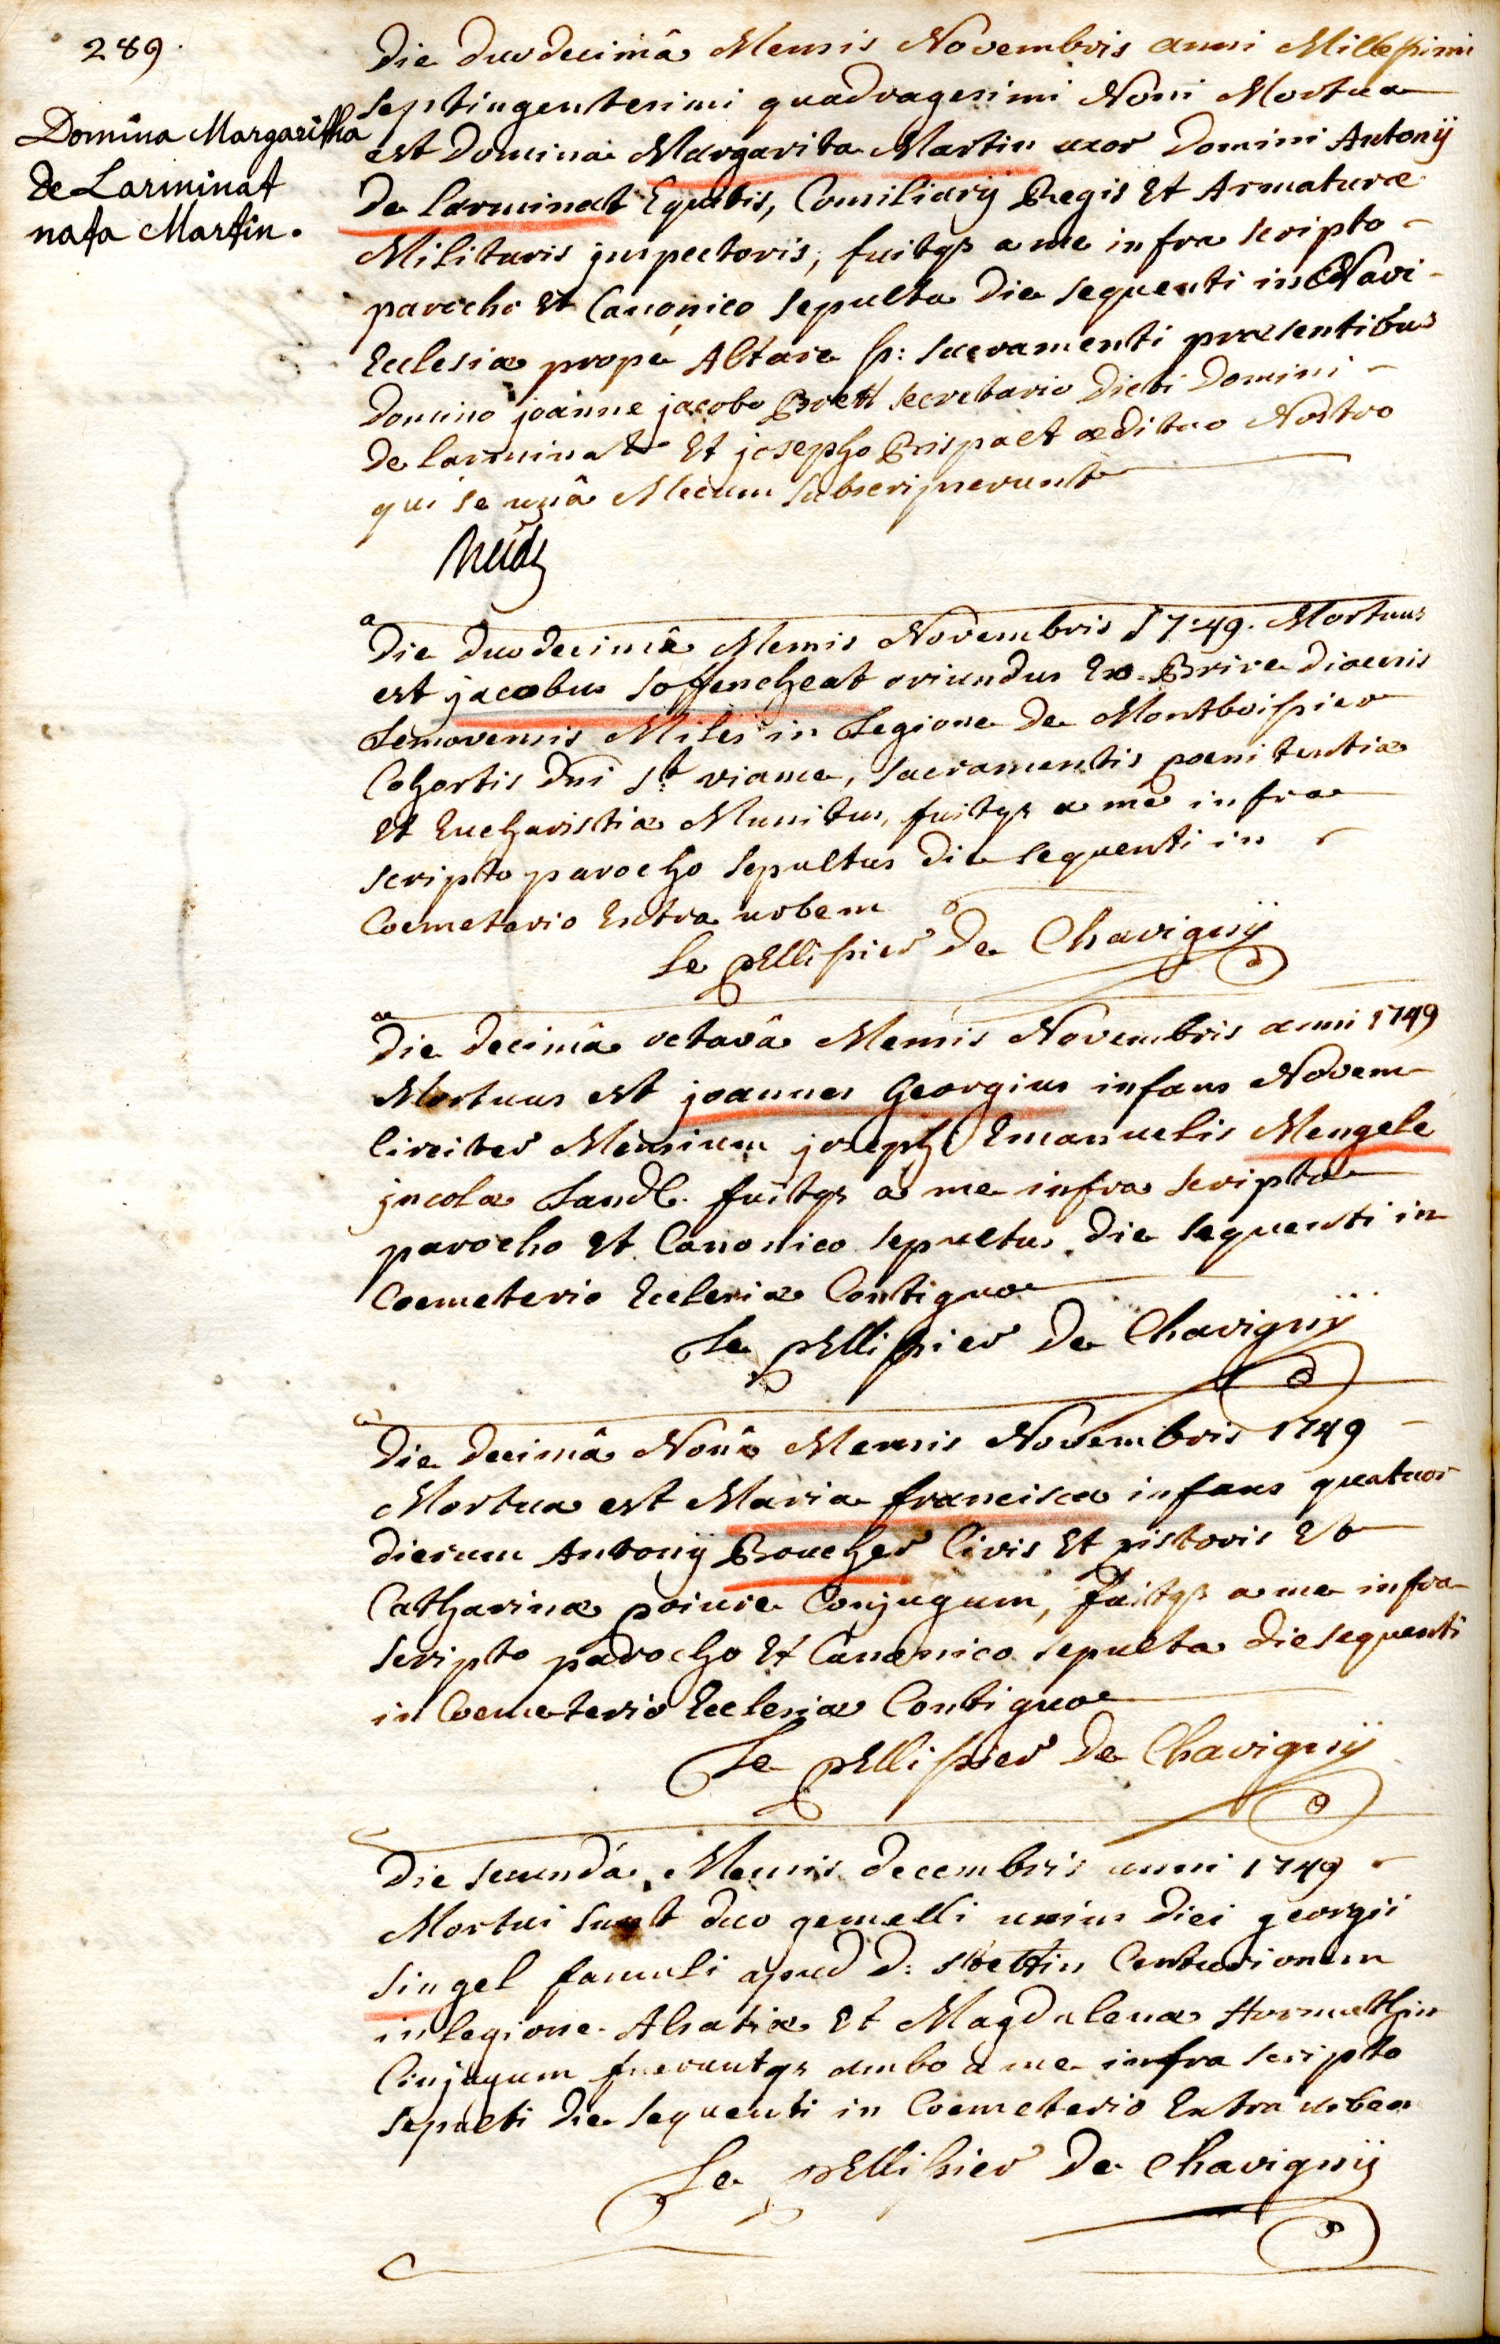 289.
Domina Margaritha
de Larminat
nata Martin.
Die duodecimâ Mensis Novembris anni Millesimi
septingentesimi quadragesimi Noni Mortua
est Domina Margarita Martin uxor Domini Antonij
De Larminat Equitis, Consiliarij Regis Et Armaturæ
Militaris jnspectoris, fuitqs a me infra scripto
parocho Et Canonico sepulta Die sequenti in Navi
Ecclesiæ prope Altare ss: sacramenti præsentibus
Domino joanne jacobo Brett secretario Dicti Domini
De larminat Et josepho Crispaet ædituo Nostro
qui se unâ Mecum subscripserunt
Die duodecimâ Mensis Novembris 1749. Mortuus
est jacobus Soffencheat oriundus Ex Brive Diœcesis
Lemovensis Miles in Legione De Montboissier
Cohortis Dni St viance, sacramentis pœnitentiæ
Et Eucharistiæ Munitus, fuitqs a me infra
scripto parocho sepultus Die sequenti in
Coemeterio Extra urbem
Le pEllissier De Chavignij
Die decimâ octavâ Mensis Novembris anni 1749
Mortuus est joannes Georgius infans Novem
Circiter Mensium josephi Emanuelis Mengele
jncolæ Land. fuitqs a me infra scripto
parocho Et Canonico sepultus Die sequenti in
Coemeterio Ecclesiæ Contiguo
Le pEllissier De Chavignij
Die decimâ Nonâ Mensis Novembris 1749
Mortua est Maria francisca infans quatuor
dierum Antonij Boucher Civis Et pistoris Et
Catharinæ poiure Conjugum, fuitqs a me infra
scripto parocho Et Canonico sepulta die sequenti
in Coemeterio Ecclesiæ Contiguo
Le pEllissier De Chavignij
Die secundâ Mensis decembris anni 1749
Mortui sunt duo gemelli unius Diei georgii
singel famuli apud D: stettin Centurionem
in legione Alsatiæ Et Magdalenæ
Conjugum fuerantqs ambo a me infra scripto
sepulti Die sequenti in Coemeterio Extra urbem
Le pEllissier De Chavignij